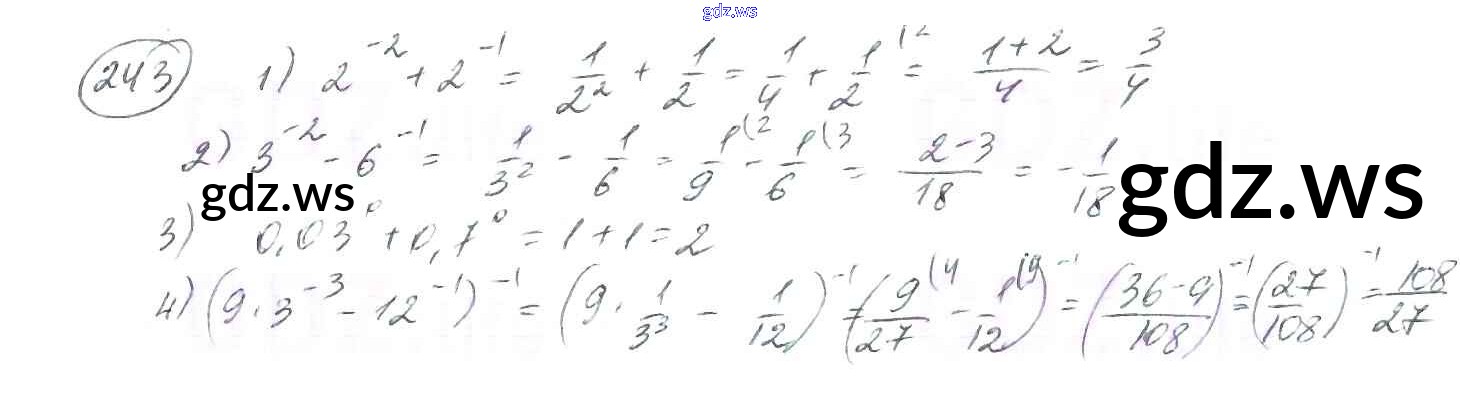 gdz.ws
243 1) 2⁻² + 2⁻¹ = 1/2² + 1/2 = 1/4 + 1/2 (2 = (1+2)/4 = 3/4
2) 3⁻² - 6⁻¹ = 1/3² - 1/6 = 1/9 (2 - 1/6 (3 = (2-3)/18 = -1/18
gdz.ws gdz.ws
3) 0,03⁰ + 0,7⁰ = 1 + 1 = 2
4) (9 · 3⁻³ - 12⁻¹)⁻¹ = (9 · 1/3³ - 1/12)⁻¹ = (9/27 (4 - 1/12 (9)⁻¹ = ((36-9)/108)⁻¹ = (27/108)⁻¹ = 108/27